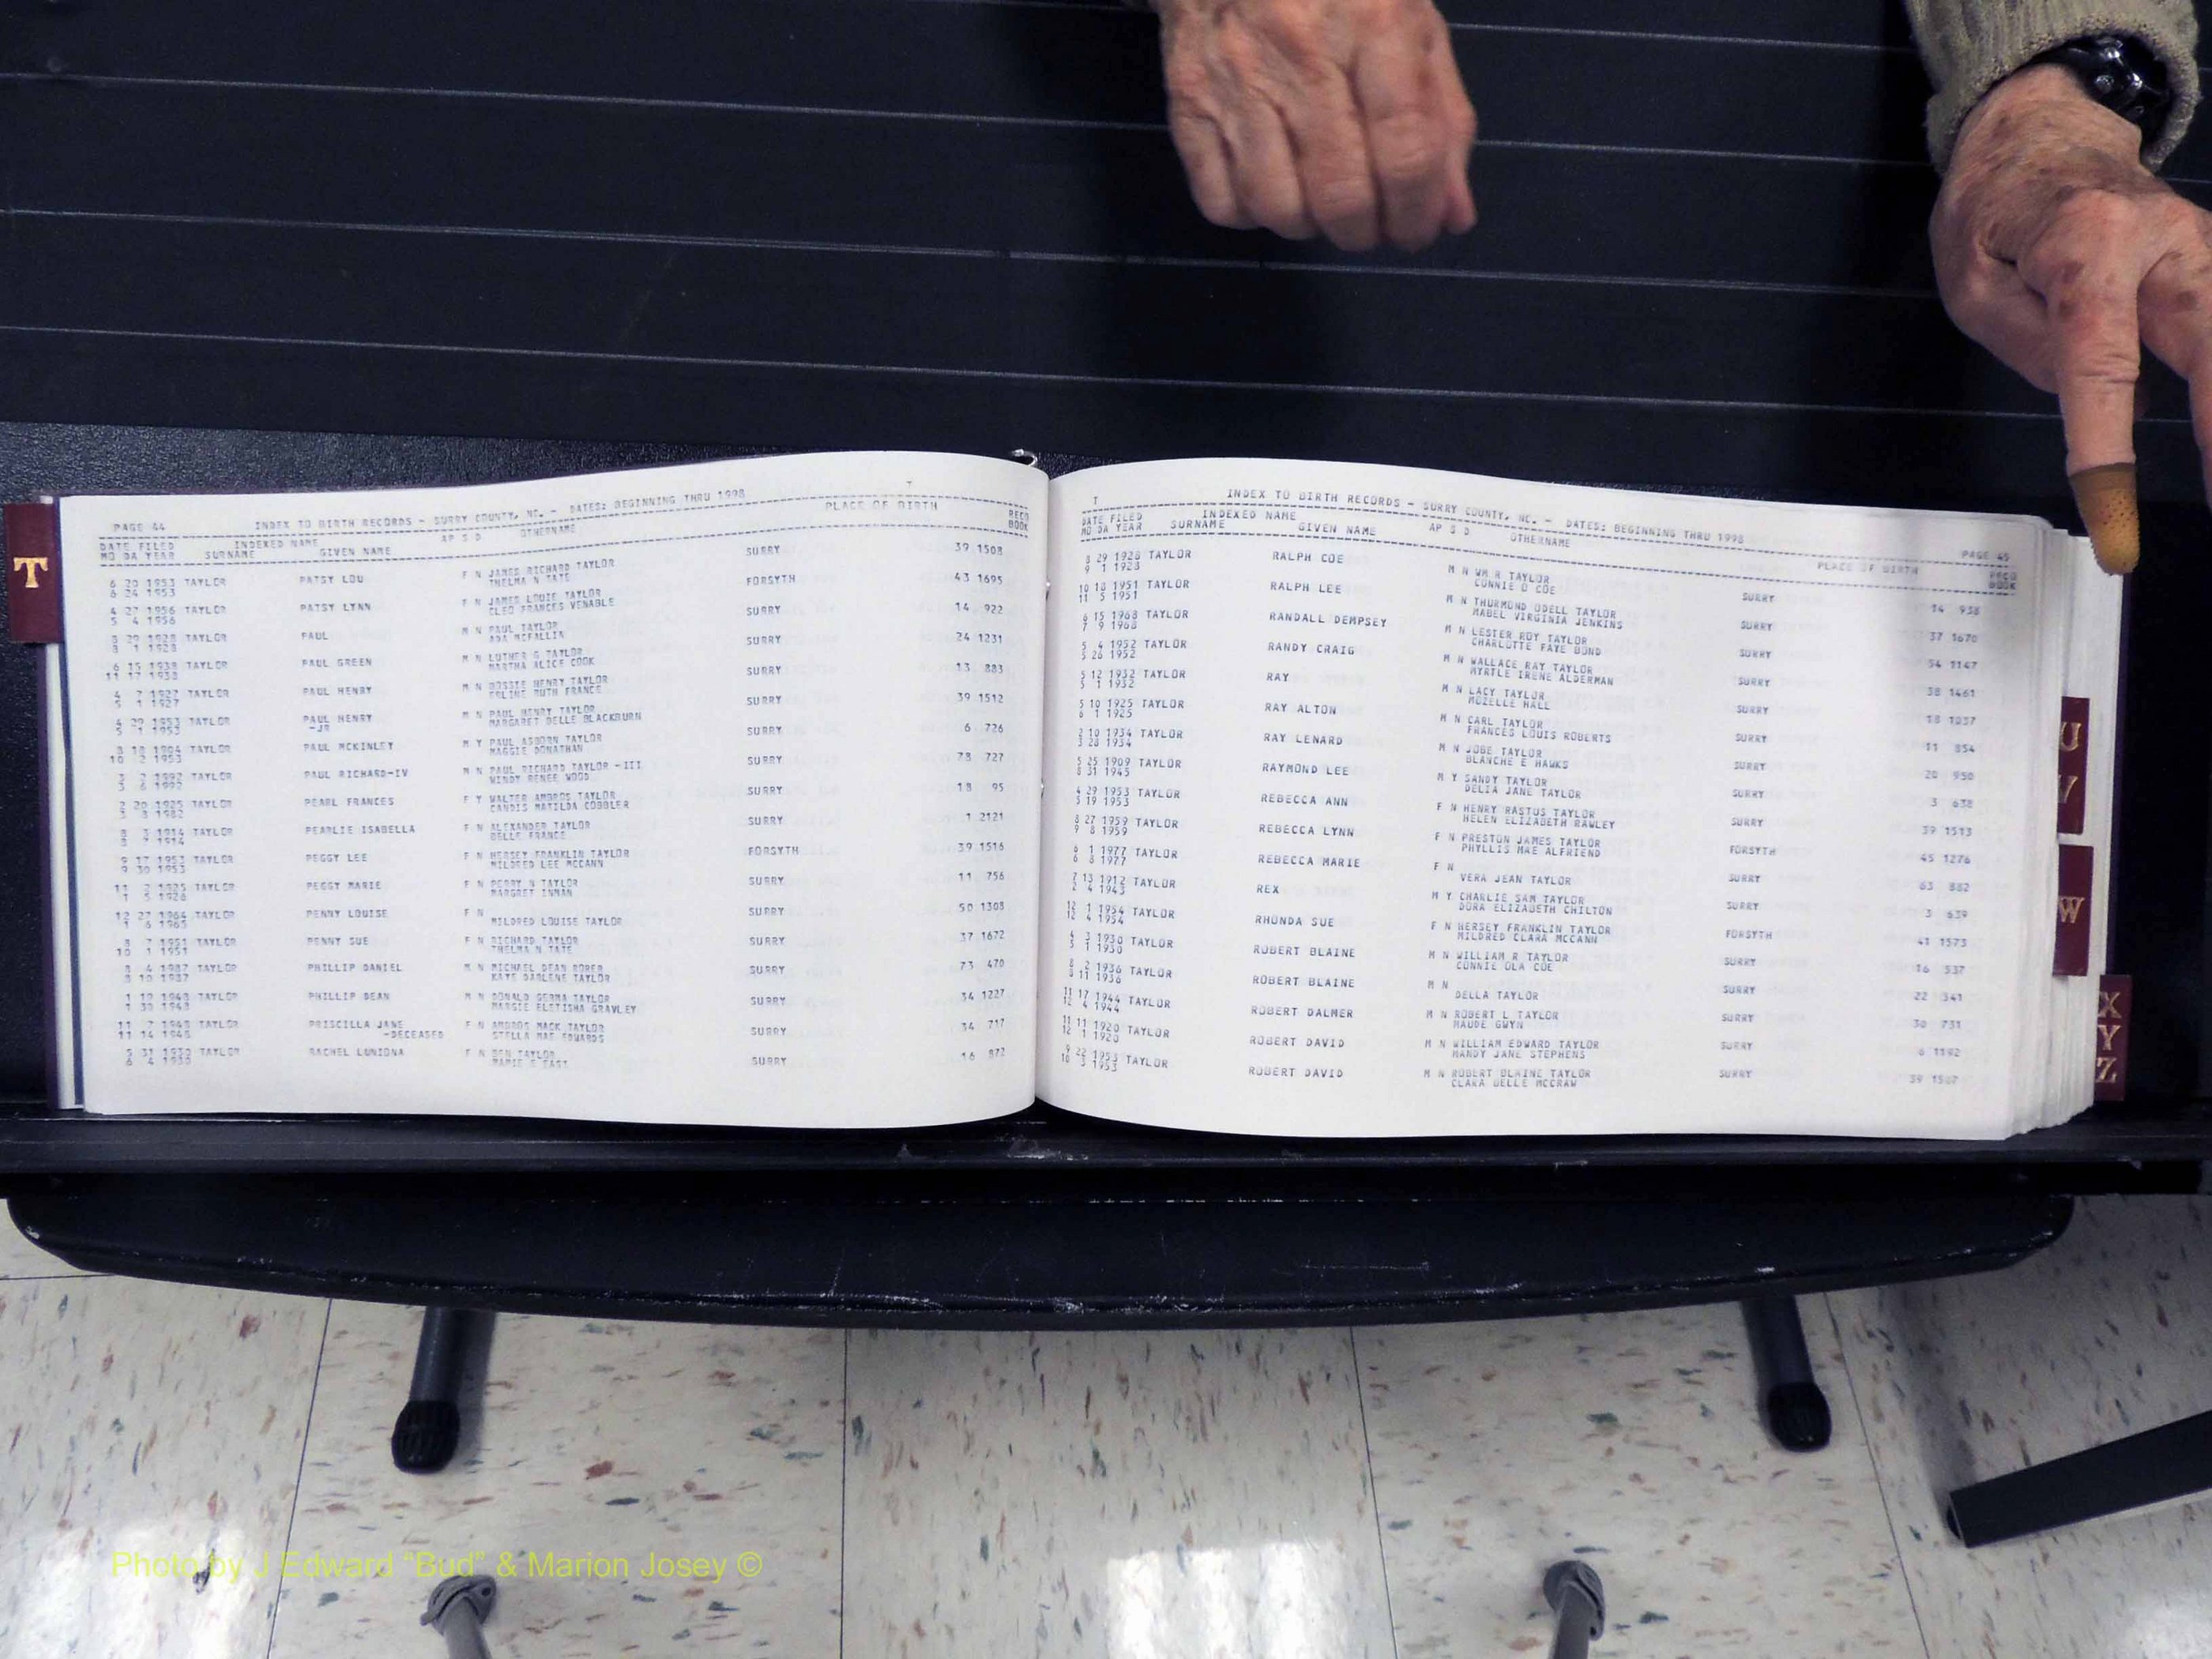 T
PAGE 44 INDEX TO BIRTH RECORDS - SURRY COUNTY, NC. - DATES: BEGINNING THRU 1998 T
DATE FILED INDEXED NAME AP S D OTHERNAME PLACE OF BIRTH RECD
MO DA YEAR SURNAME GIVEN NAME BOOK
6 20 1953 TAYLOR PATSY LOU F N JAMES RICHARD TAYLOR SURRY 39 1508
6 24 1953 THELMA N TATE
4 27 1956 TAYLOR PATSY LYNN F N JAMES LOUIE TAYLOR FORSYTH 43 1695
5 4 1956 CLEO FRANCES VENABLE
8 29 1928 TAYLOR PAUL M N PAUL TAYLOR SURRY 14 922
1928 ADA MCFALLIN
6 15 1938 TAYLOR PAUL GREEN M N LUTHER G TAYLOR SURRY 24 1231
11 17 1938 MARTHA ALICE COOK
4 7 1927 TAYLOR PAUL HENRY M N HENRY TAYLOR SURRY 13 883
5 1 1927 RUTH FRANCE
4 29 1953 TAYLOR PAUL HENRY M N PAUL HENRY TAYLOR SURRY 39 1512
5 1 1953 -JR MARGARET BELLE BLACKBURN
8 18 1904 TAYLOR PAUL MCKINLEY M Y PAUL ASBORN TAYLOR SURRY 6 726
10 2 1953 MAGGIE DONATHAN
3 2 1992 TAYLOR PAUL RICHARD-IV M N PAUL RICHARD TAYLOR -III SURRY 78 727
3 6 1992 WINDY RENEE WOOD
2 20 1925 TAYLOR PEARL FRANCES F Y WALTER AMBROS TAYLOR SURRY 18 95
3 8 1982 CANDIS MATILDA COBBLER
8 3 1914 TAYLOR PEARLIE ISABELLA F N ALEXANDER TAYLOR SURRY 1 2121
8 7 1914 BELLE FRANCE
9 17 1953 TAYLOR PEGGY LEE F N HERSEY FRANKLIN TAYLOR FORSYTH 39 1516
9 30 1953 MILDRED LEE MCCANN
11 2 1925 TAYLOR PEGGY MARIE F N PERRY N TAYLOR SURRY 11 756
1 5 1926 MARGRET INMAN
12 27 1964 TAYLOR PENNY LOUISE F N SURRY 50 1308
1 6 1965 MILDRED LOUISE TAYLOR
8 7 1951 TAYLOR PENNY SUE F N RICHARD TAYLOR SURRY 37 1672
10 1 1951 THELMA N TATE
8 4 1987 TAYLOR PHILLIP DANIEL M N MICHAEL DEAN BOBER SURRY 73 470
8 10 1987 KATE DARLENE TAYLOR
1 19 1948 TAYLOR PHILLIP DEAN M N DONALD GERMA TAYLOR SURRY 34 1227
1 30 1948 MARGIE ELETISHA GRAVLEY
11 7 1948 TAYLOR PRISCILLA JANE F N AMBROS MACK TAYLOR SURRY 34 717
11 14 1948 -DECEASED STELLA MAE EDWARDS
5 31 1930 TAYLOR RACHEL LUNIONA F N BEN TAYLOR SURRY 16 872
6 4 1930 MAMIE E EAST
T INDEX TO BIRTH RECORDS - SURRY COUNTY, NC. - DATES: BEGINNING THRU 1998 PAGE 45
DATE FILED INDEXED NAME AP S D OTHERNAME PLACE OF BIRTH RECD
MO DA YEAR SURNAME GIVEN NAME BOOK
8 29 1928 TAYLOR RALPH COE M N WM R TAYLOR SURRY 14 938
9 1 1928 CONNIE O COE
10 18 1951 TAYLOR RALPH LEE M N THURMOND ODELL TAYLOR SURRY 37 1670
11 5 1951 MABEL VIRGINIA JENKINS
6 15 1968 TAYLOR RANDALL DEMPSEY M N LESTER ROY TAYLOR SURRY 54 1147
7 9 1968 CHARLOTTE FAYE BOND
5 4 1952 TAYLOR RANDY CRAIG M N WALLACE RAY TAYLOR SURRY 38 1461
5 26 1952 MYRTLE IRENE ALDERMAN
5 12 1932 TAYLOR RAY M N LACY TAYLOR SURRY 18 1037
5 1 1932 MOZELLE HALL
5 10 1925 TAYLOR RAY ALTON M N CARL TAYLOR SURRY 11 854
6 1 1925 FRANCES LOUIS ROBERTS
2 10 1934 TAYLOR RAY LENARD M N JOBE TAYLOR SURRY 20 950
3 28 1934 BLANCHE E HAWKS
5 25 1909 TAYLOR RAYMOND LEE M Y SANDY TAYLOR SURRY 3 638
8 31 1945 DELIA JANE TAYLOR
4 29 1953 TAYLOR REBECCA ANN F N HENRY RASTUS TAYLOR SURRY 39 1513
5 19 1953 HELEN ELIZABETH RAWLEY
8 27 1959 TAYLOR REBECCA LYNN F N PRESTON JAMES TAYLOR FORSYTH 45 1276
9 8 1959 PHYLLIS MAE ALFRIEND
6 1 1977 TAYLOR REBECCA MARIE F N SURRY 63 882
6 8 1977 VERA JEAN TAYLOR
7 13 1912 TAYLOR REX M Y CHARLIE SAM TAYLOR SURRY 3 639
2 4 1943 DORA ELIZABETH CHILTON
12 1 1954 TAYLOR RHONDA SUE F N HERSEY FRANKLIN TAYLOR FORSYTH 41 1573
12 4 1954 MILDRED CLARA MCCANN
4 3 1930 TAYLOR ROBERT BLAINE M N WILLIAM R TAYLOR SURRY 16 537
5 1 1930 CONNIE OLA COE
8 2 1936 TAYLOR ROBERT BLAINE M N SURRY 22 341
8 11 1936 DELLA TAYLOR
11 17 1944 TAYLOR ROBERT DALMER M N ROBERT L TAYLOR SURRY 30 731
12 4 1944 MAUDE GWYN
11 11 1920 TAYLOR ROBERT DAVID M N WILLIAM EDWARD TAYLOR SURRY 6 1192
12 1 1920 MANDY JANE STEPHENS
9 22 1953 TAYLOR ROBERT DAVID M N ROBERT BLAINE TAYLOR SURRY 39 1507
10 3 1953 CLARA BELLE MCCRAW
U
V
W
X
Y
Z
Photo by J Edward “Bud” & Marion Josey ©